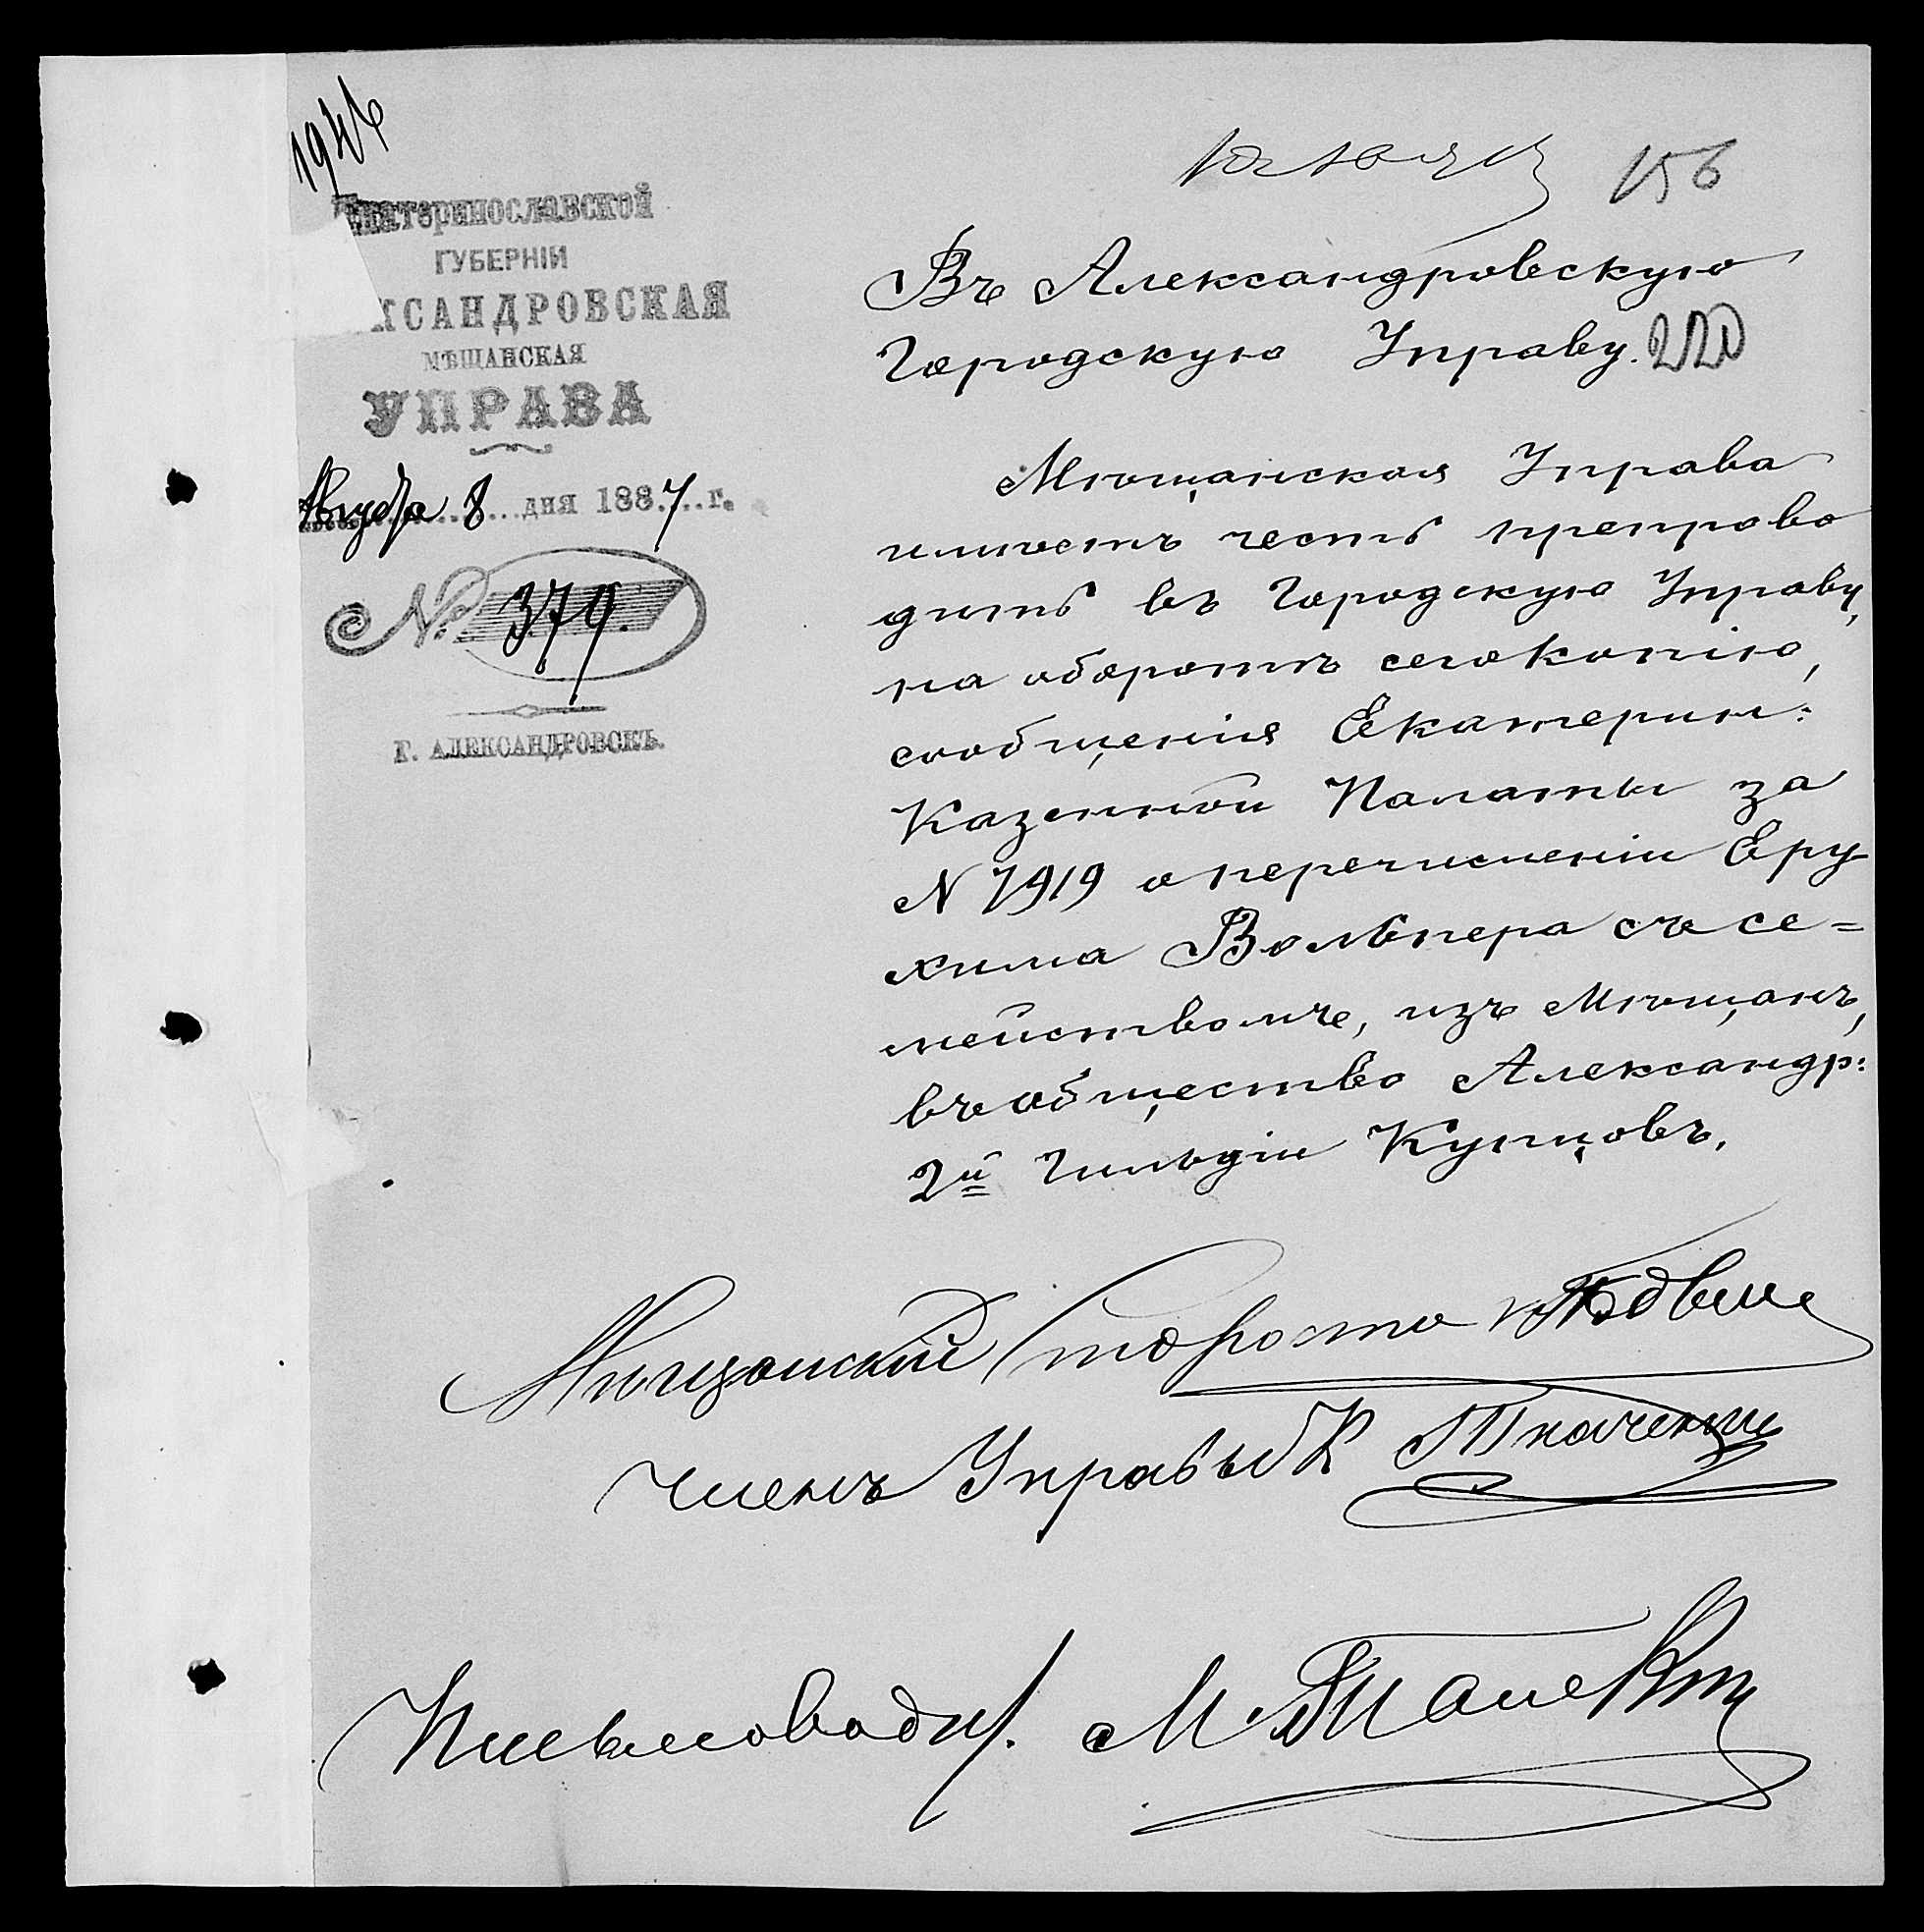 156
Екатеринославской
ГУБЕРНІИ
КСАНДРОВСКАЯ
МѢЩАНСКАЯ
УПРАВА
Августа 8 дня 1887 г.
№ 379.
Г. АЛЕКСАНДРОВСКЪ.
Въ Александровскую
Городскую Управу. 220
Мѣщанская Управа
имѣетъ честь препрово
дить въ Городскую Управу,
на оборотѣ сего копію,
сообщенія Екатерин:
Казенной Палаты за
N 7919 о перечисленіи Еру-
хима Вольпера съ се=
мействомъ, изъ Мѣщанъ,
въ общество Александр:
2й Гильдіи Купцовъ.
Мѣщанскій Староста
Членъ Управы К Ткаченко
Письмовод. М